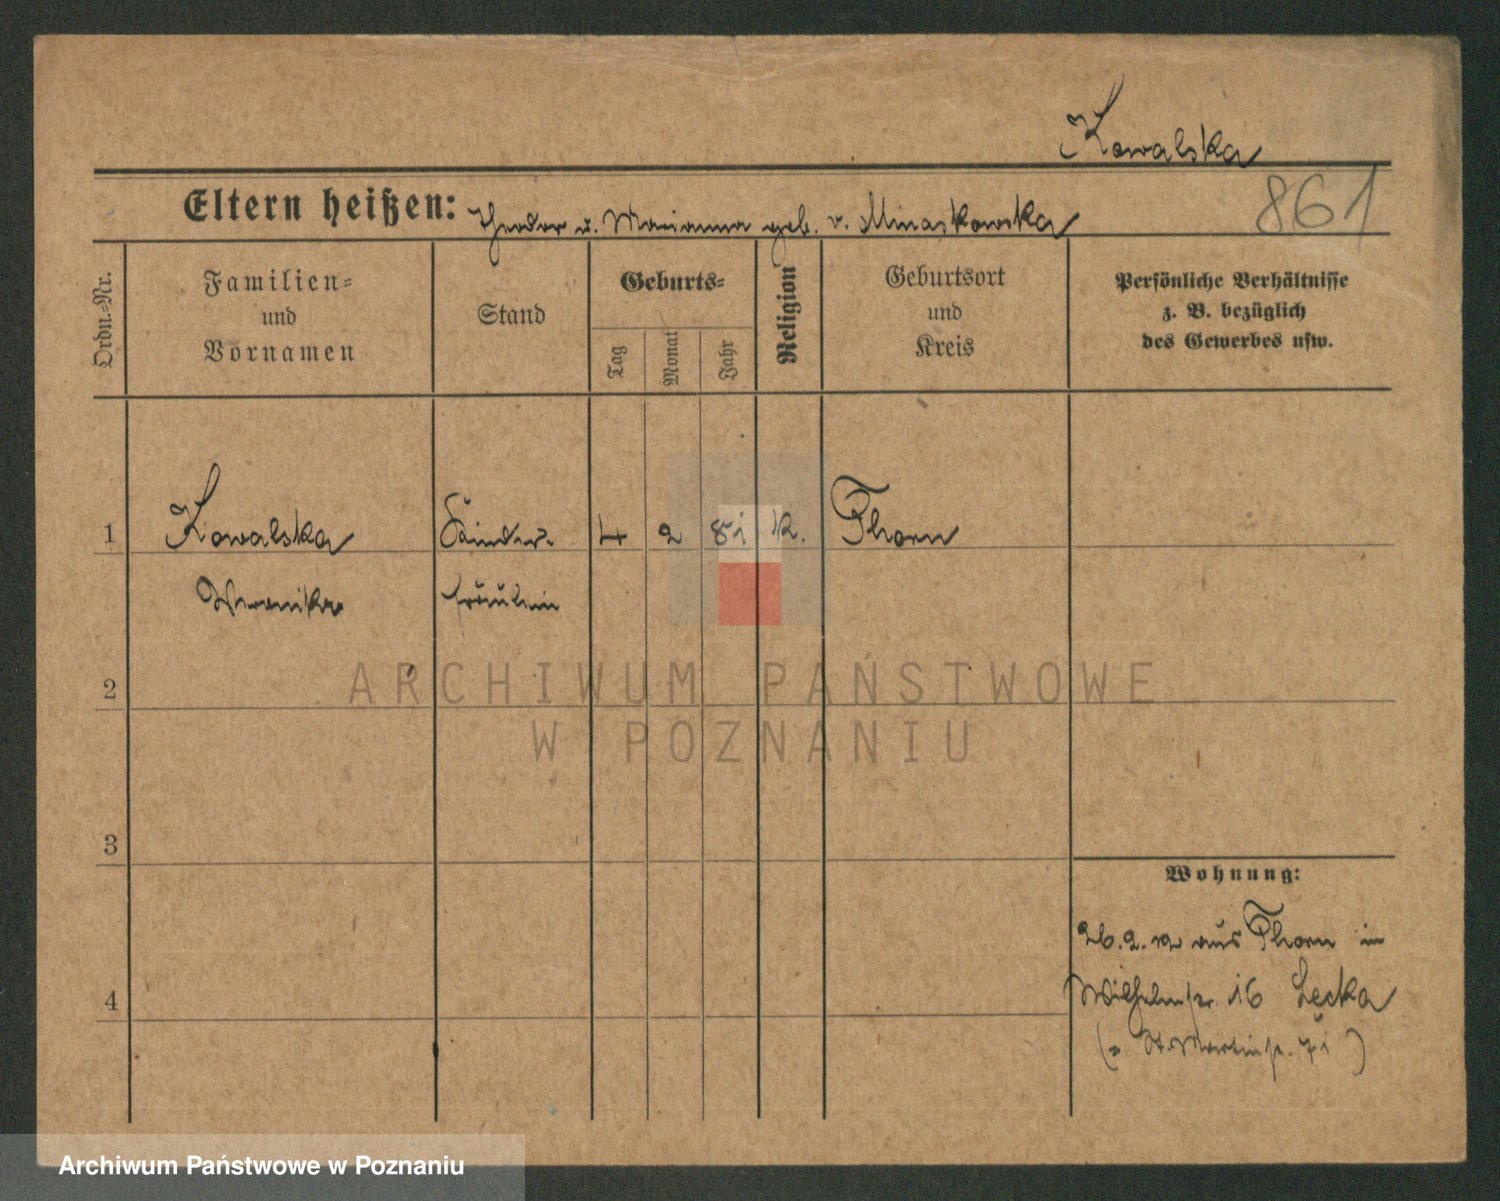 Kowalska
861
Eltern heißen: Theodor u. Marianna geb. v. Minaskowska
Ordn.=Nr.
Familien=
und
Vornamen
Stand
Geburts=
Tag
Monat
Jahr
Religion
Geburtsort
und
Kreis
Persönliche Verhältnisse
z. B. bezüglich
des Gewerbes usw.
1 Kowalska Kinder- 4 2 81 k. Thorn
Weronika fräulein
2
3
4
Wohnung:
26.2.12 aus Thorn in
Wilhelmstr. 16 Łęcka
(= St. Martinstr. 71)
ARCHIWUM PAŃSTWOWE
W POZNANIU
Archiwum Państwowe w Poznaniu